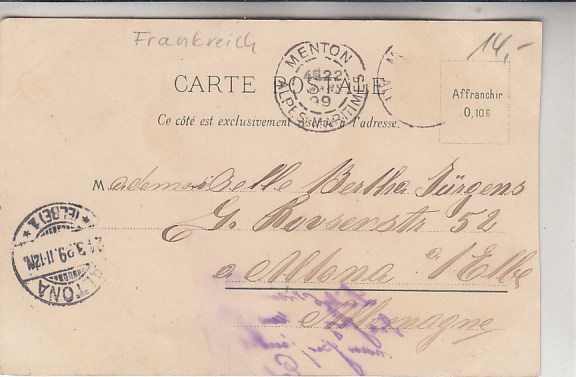 Frankreich
14,-
MENTON
4E 22
99
ALPES-MARITIMES
CARTE POSTALE
Affranchir
0,10c
Ce côté est exclusivement réservé à l'adresse.
Mademoiselle Bertha Jürgens
Gr. Rosenstr 52
à Altona a/Elbe
Allemagne
ALTONA
* (ELBE) 1 *
24.3.99. 11-12N.